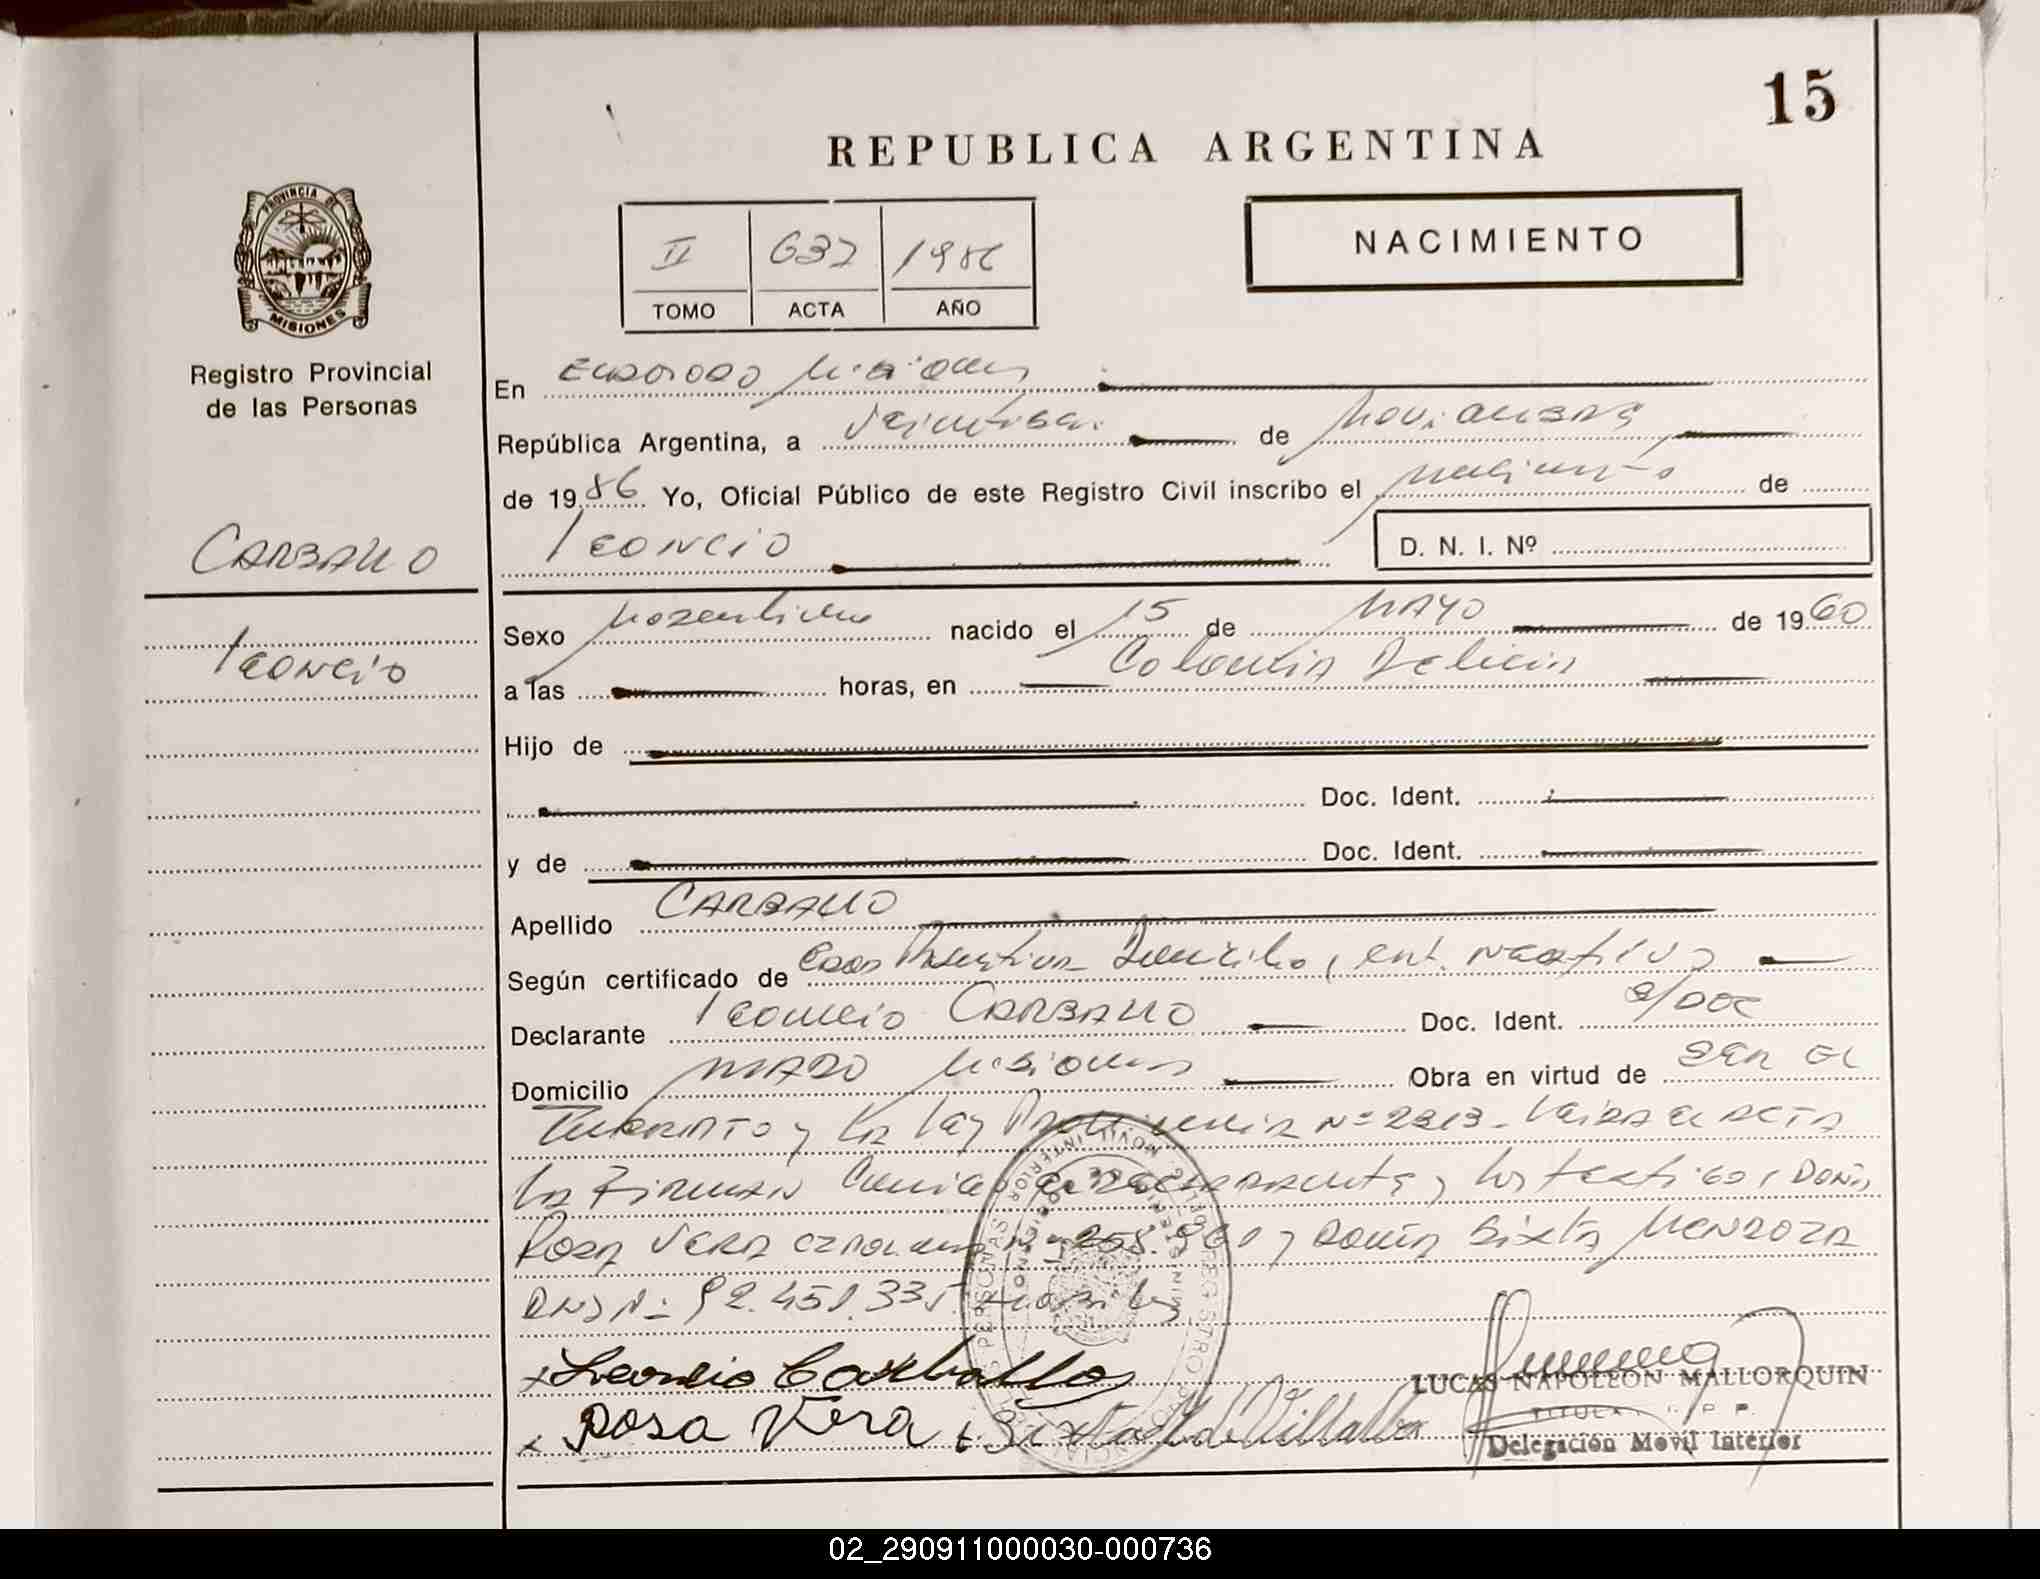 15
REPUBLICA ARGENTINA
PROVINCIA DE
MISIONES
II 637 1986
TOMO ACTA AÑO
NACIMIENTO
Registro Provincial
de las Personas
En ELDORADO Misiones
República Argentina, a de Noviembre
de 1986 Yo, Oficial Público de este Registro Civil inscribo el nacimiento de
CARBALLO
leoncio
D. N. I. Nº
leoncio
Sexo Masculino nacido el 15 de MAYO de 1960
a las horas, en Colonia Delicia
Hijo de
Doc. Ident.
y de Doc. Ident.
Apellido CARBALLO
Según certificado de Domicilio, cert. negativo
Declarante leoncio CARBALLO Doc. Ident. S/DOC
Domicilio MADO Misiones Obra en virtud de SER EL
y la ley Provincia Nº 2313. leida el ACTA
la FIRMAN conmigo el declarante y los testigos, DOÑA
ROSA VERA y DOÑA SIXTA MENDOZA
DNI Nº 92.451.335
x Leoncio Carballo
x Rosa Vera x Sixta M de Villalba
LUCAS NAPOLEON MALLORQUIN
TITULAR
Delegación Movil Interior
02_290911000030-000736